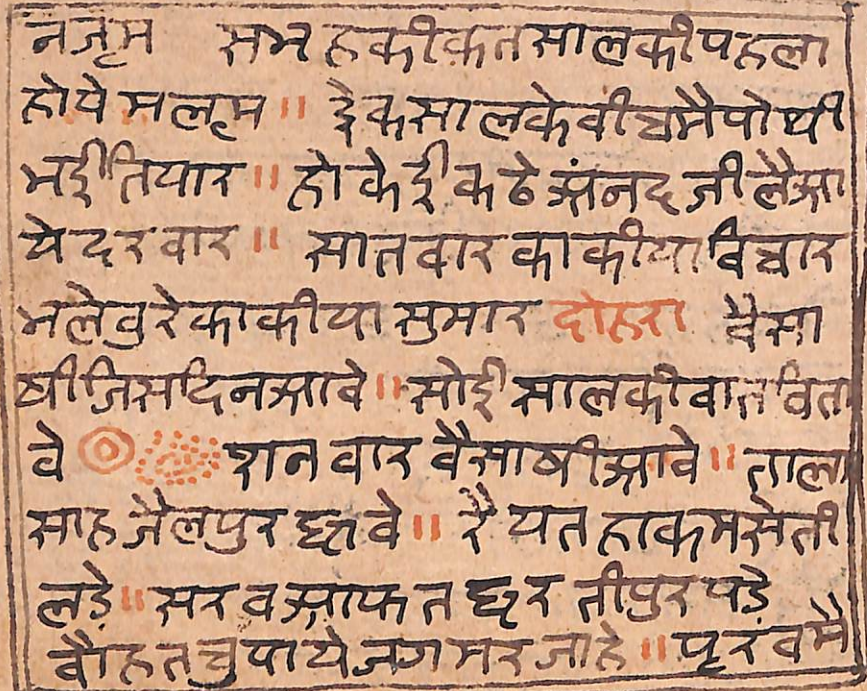 नजूम सभ हकीकत सालकी पहला
होये मलूम ॥ ईकसालके बीचमै पोथी
भई तियार ॥ होके ईकठे अंनद जी लैआ
ये दरबार ॥ सातवार का कीया विचार
भले बुरे का कीया सुमार दोहरा वैसा
षी जिस दिन आवे ॥ सोई साल की बात बिता
वे शनवार वैसाषी आवे ॥ ताला
साह जैलपुर छावे ॥ रैयत हाकम सेती
लड़े ॥ सरब आफत धरतीपुर पड़े
बौहत चुपाये जग मर जाहे ॥ पूरब मै